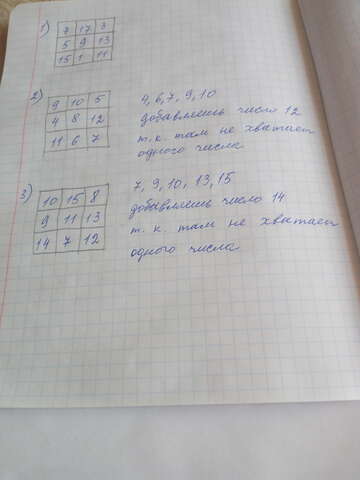 1)
7 17 3
5 9 13
15 1 11
2)
9 10 5
4 8 12
11 6 7
4, 6, 7, 9, 10
добавляешь число 12
т. к. там не хватает
одного числа
3)
10 15 8
9 11 13
14 7 12
7, 9, 10, 13, 15
добавляешь число 14
т. к. там не хватает
одного числа